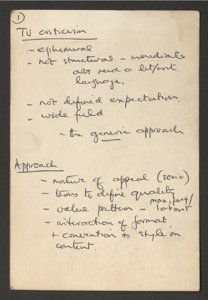 ①
TV criticism
- ephemeral
- not structural - immediate
ads need a lit/crit.
language.
- not defined expectation
- wide field
- the generic approach
Approach
- nature of appeal (socio)
- terms to define quality
- value pattern - manifest/
latent
- interaction of format
+ convention & style on
content.